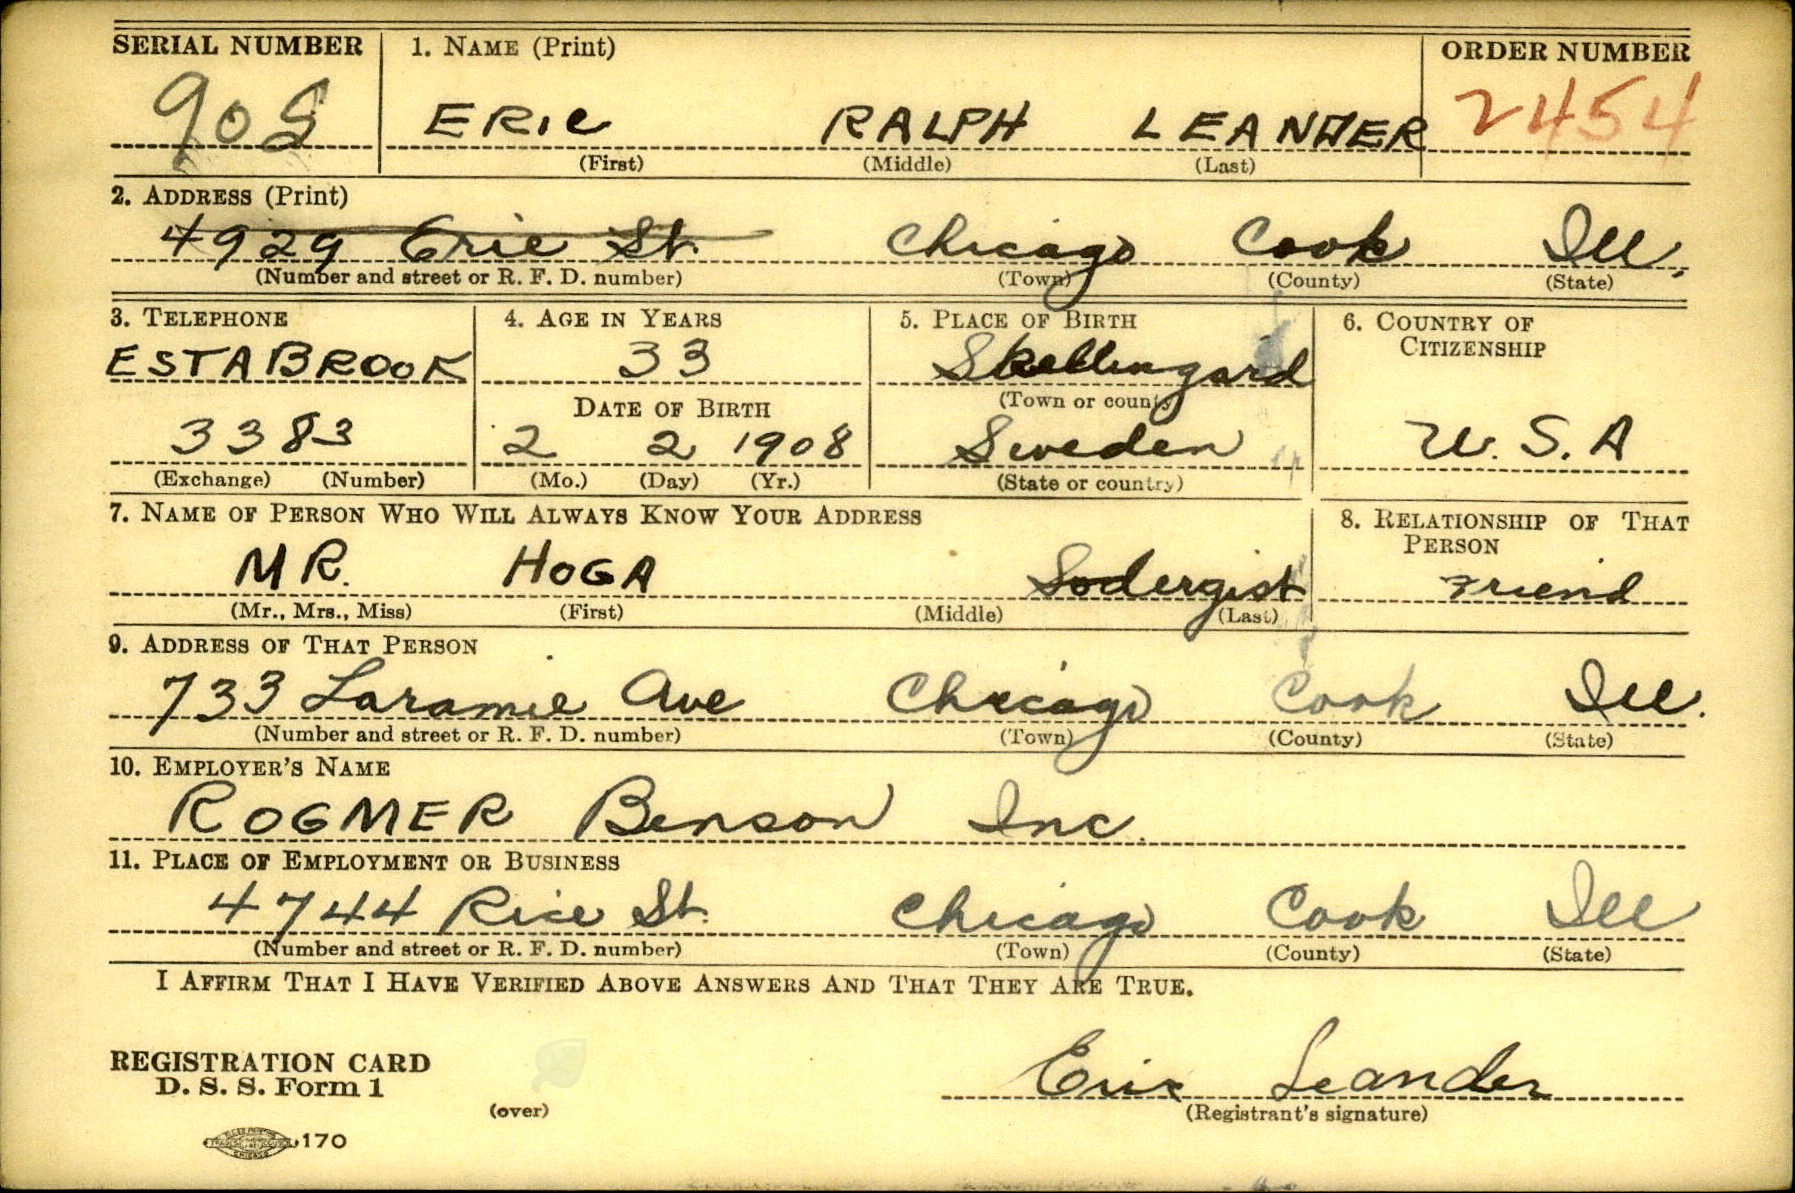 SERIAL NUMBER 1. NAME (Print) ORDER NUMBER
908 ERIC RALPH LEANDER 2454
(First) (Middle) (Last)
2. ADDRESS (Print)
4929 Erie St. Chicago Cook Ill.
(Number and street or R. F. D. number) (Town) (County) (State)
3. TELEPHONE 4. AGE IN YEARS 5. PLACE OF BIRTH 6. COUNTRY OF
CITIZENSHIP
ESTABROOK 33 Skellingard
(Town or county)
DATE OF BIRTH
3383 2 2 1908 Sweden U.S.A
(Exchange) (Number) (Mo.) (Day) (Yr.) (State or country)
7. NAME OF PERSON WHO WILL ALWAYS KNOW YOUR ADDRESS 8. RELATIONSHIP OF THAT
PERSON
MR. HOGA Sodergist Friend
(Mr., Mrs., Miss) (First) (Middle) (Last)
9. ADDRESS OF THAT PERSON
733 Laramie Ave Chicago Cook Ill.
(Number and street or R. F. D. number) (Town) (County) (State)
10. EMPLOYER'S NAME
ROGMER Benson Inc.
11. PLACE OF EMPLOYMENT OR BUSINESS
4744 Rice St. Chicago Cook Ill
(Number and street or R. F. D. number) (Town) (County) (State)
I AFFIRM THAT I HAVE VERIFIED ABOVE ANSWERS AND THAT THEY ARE TRUE.
REGISTRATION CARD
D. S. S. Form 1
Eric Leander
(over) (Registrant's signature)
170